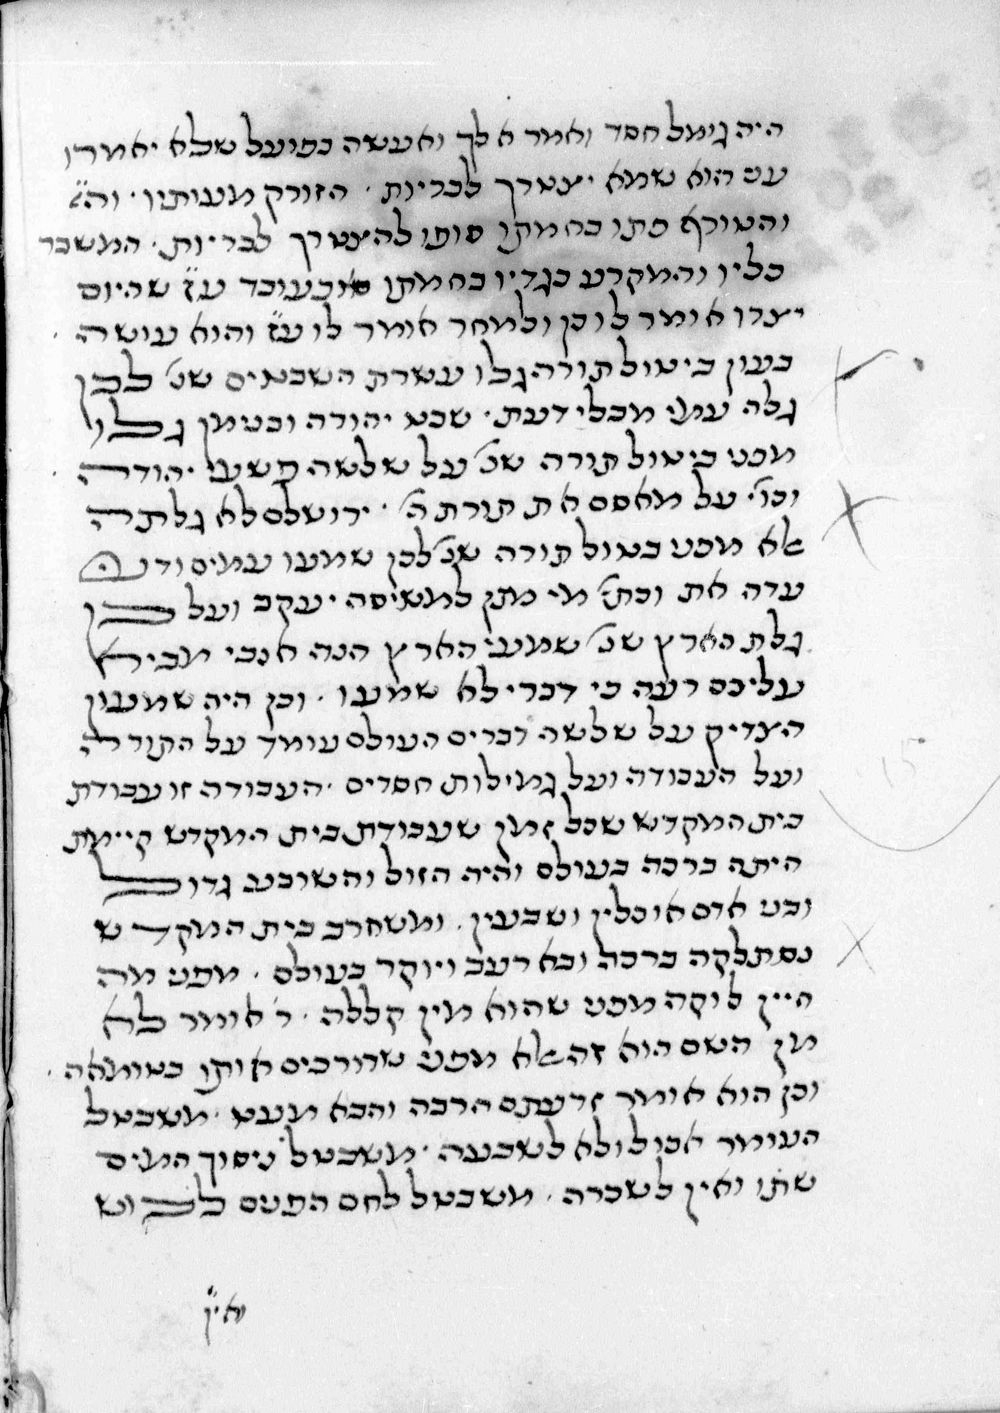 היה גומל חסד ואמר אלך ואעשה כפועל שלא יאמרו
עם הוא שמא יצטרך לבריות · הזורק מעותיו · וה״א
והטורף פתו בחמתו סופו להצטרך לבריות · המשבר
כליו והמקרע בגדיו בחמתו כעובד ע״ז שהיום
יצרו אומר לו כן ולמחר אומר לו ע״ז והוא עושה ·
בעון ביטול תורה גלו עשרת השבטים שנ׳ לכן
גלה עמי מבלי דעת · שבט יהודה ובנימן גלו
מפני ביטול תורה שנ׳ על שלשה פשעי יהודה ·
וכו׳ על מאסם את תורת ה׳ · ירושלם לא גלתה
אלא מפני בטול תורה שנ׳ לכן שמעו עמים ודעי
עדה את וכת׳ מי נתן למשיסה יעקב ועל כן
גלת הארץ שנ׳ שמעי הארץ הנה אנכי מביא
עליכם רעה כי דברי לא שמעו · וכן היה שמעון
הצדיק על שלשה דברים העולם עומד על התורה
ועל העבודה ועל גמילות חסדים · העבודה זו עבודת
בית המקדש שכל זמן שעבודת בית המקדש קיימת
היתה ברכה בעולם והיה הזול והשובע גדול
ובני אדם אוכלין ושבעין · ומשחרב בית המקדש
נסתלקה ברכה ובא רעב ויוקר בעולם · מפני מה
היין לוקה מפני שהוא מין קללה · ר׳ אומר לא
מן השם הוא זה אלא מפני שדורכים אותו בטומאה ·
וכן הוא אומר זרעתם הרבה והבא מעט · משבטל
העומר אכול ולא לשבעה · משבטל ניסוך המים
שתו ואין לשכרה · משבטל לחם הפנים לבוש
ואין